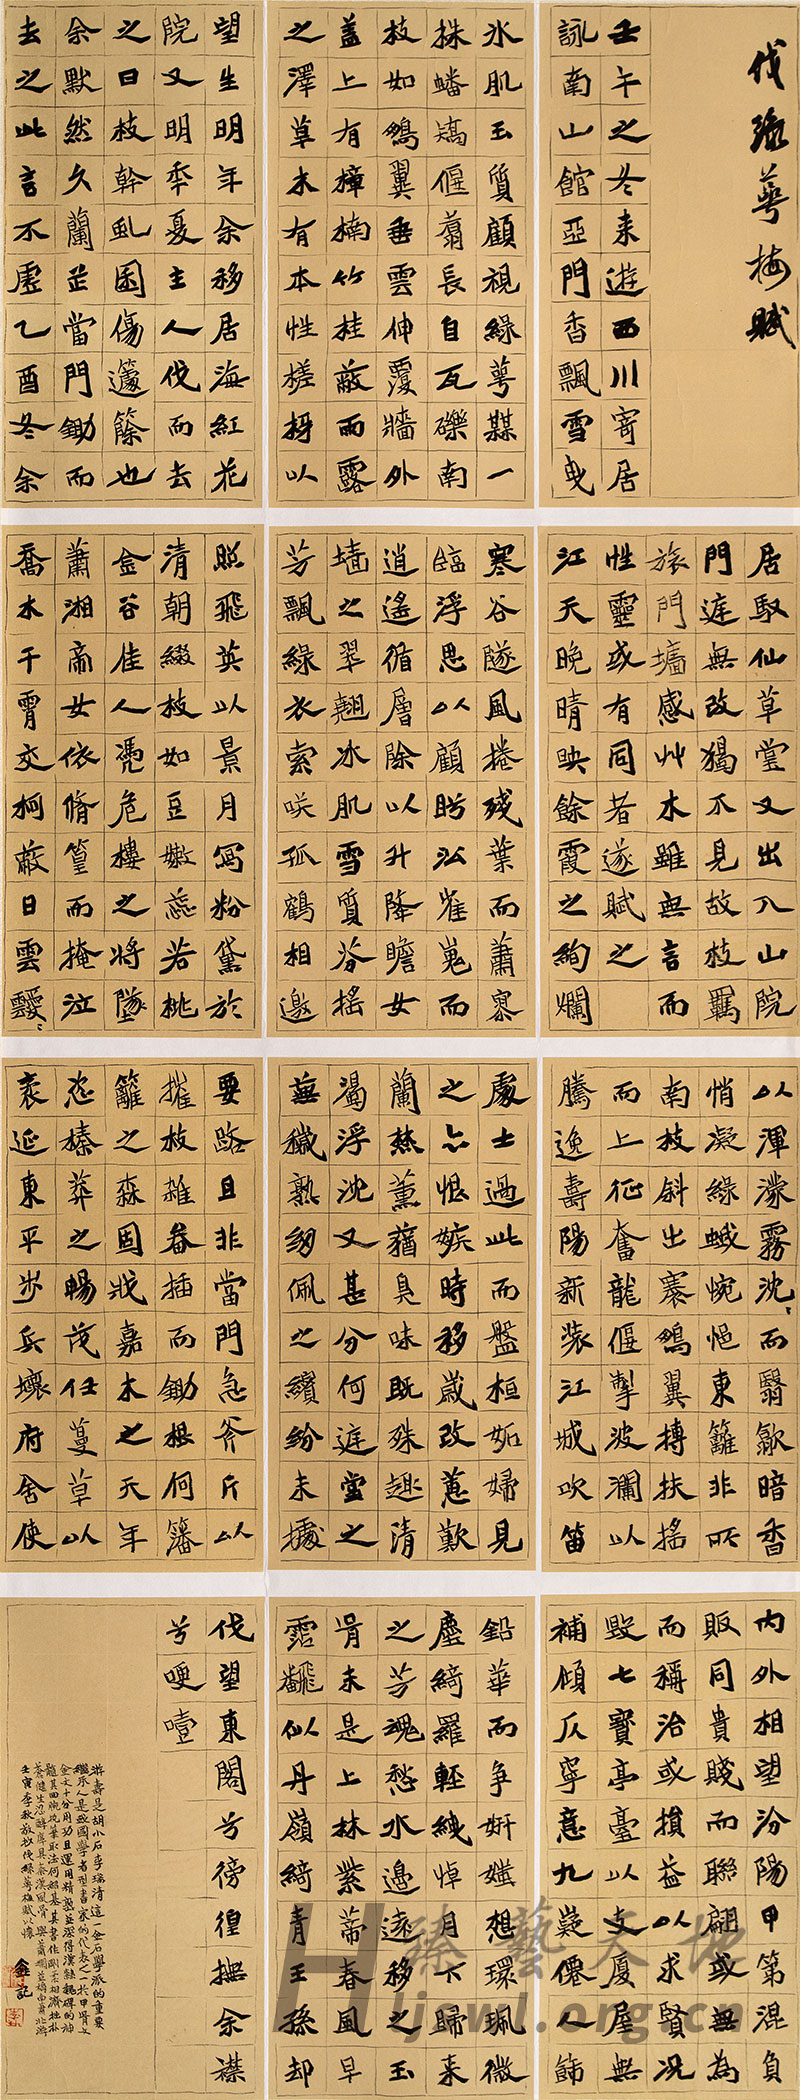 伐綠萼梅賦
壬午之冬來遊西川寄居
詠南山館亞門香飄雪曳
氷肌玉質顧視綠萼楳一
株蟠矯偃蹇長自瓦礫南
枝如鵷翼垂雲伸覆牆外
蓋上有樟楠竹桂蔽而露
之澤草木有本性槎枿以
望生明年余移居海紅花
院又明秊夏主人伐而去
之曰枝幹虬困傷籧篨也
余默然久蘭芷當門鋤而
去之此言不虛乙酉冬余
居馭仙草堂又出入山院
門庭無改獨不見故枝羈
旅門墻感艸木雖無言而
性靈或有同者遂賦之
江天晚晴映餘霞之絢爛
寒谷隧風捲殘葉而蕭寥
臨浮思以顧眄汎崔嵬而
逍遙循層除以升降瞻女
墻之翠翹冰肌雪質芬搖
芳飄綠衣索咲孤鶴相邀
照飛英以景月寫粉黛於
清朝綴枝如豆嫩蕊若桃
金谷佳人凭危樓之將墜
蕭湘帝女依脩篁而掩泣
喬木干霄交柯蔽日雲靉〻
以渾濛霧沈〻而翳歙暗香
悄凝綠蛾惋悒東籬非所
南枝斜出鵷翼搏扶搖
而上征奮龍偃掣波瀾以
騰逸壽陽新裝江城吹笛
處士過此而盤桓妬婦見
之忘恨嫉時移歲改蕙歎
蘭爇薰蕕臭味既殊趣清
濁浮沈又甚分何庭堂之
蕪穢孰紉佩之繽紛未據
要路且非當門急斧斤以
摧枝雜畚插而鋤根何籓
籬之森固戕嘉木之天年
恣榛莽之暢茂任蔓草以
袤延東平步兵壞府舍使
內外相望汾陽甲第混負
販同貴賤而聯翩或無為
而稱治或損益以求賢況
毀七寶亭臺以支廈屋無
補傾仄寧意九嶷僊人飾
鉛華而爭妍孅想環珮微
塵綺羅輕綫悼月下歸來
之芳魂愁水邊遠移之玉
骨未是上林紫蒂春風早
霑翻似丹嶺綺青王孫却
伐望東閣兮徬徨撫余襟
兮哽噎
壬寅季秋敬抄伐綠萼梅賦以懷
臻藝天地
Hijswl.org.cn